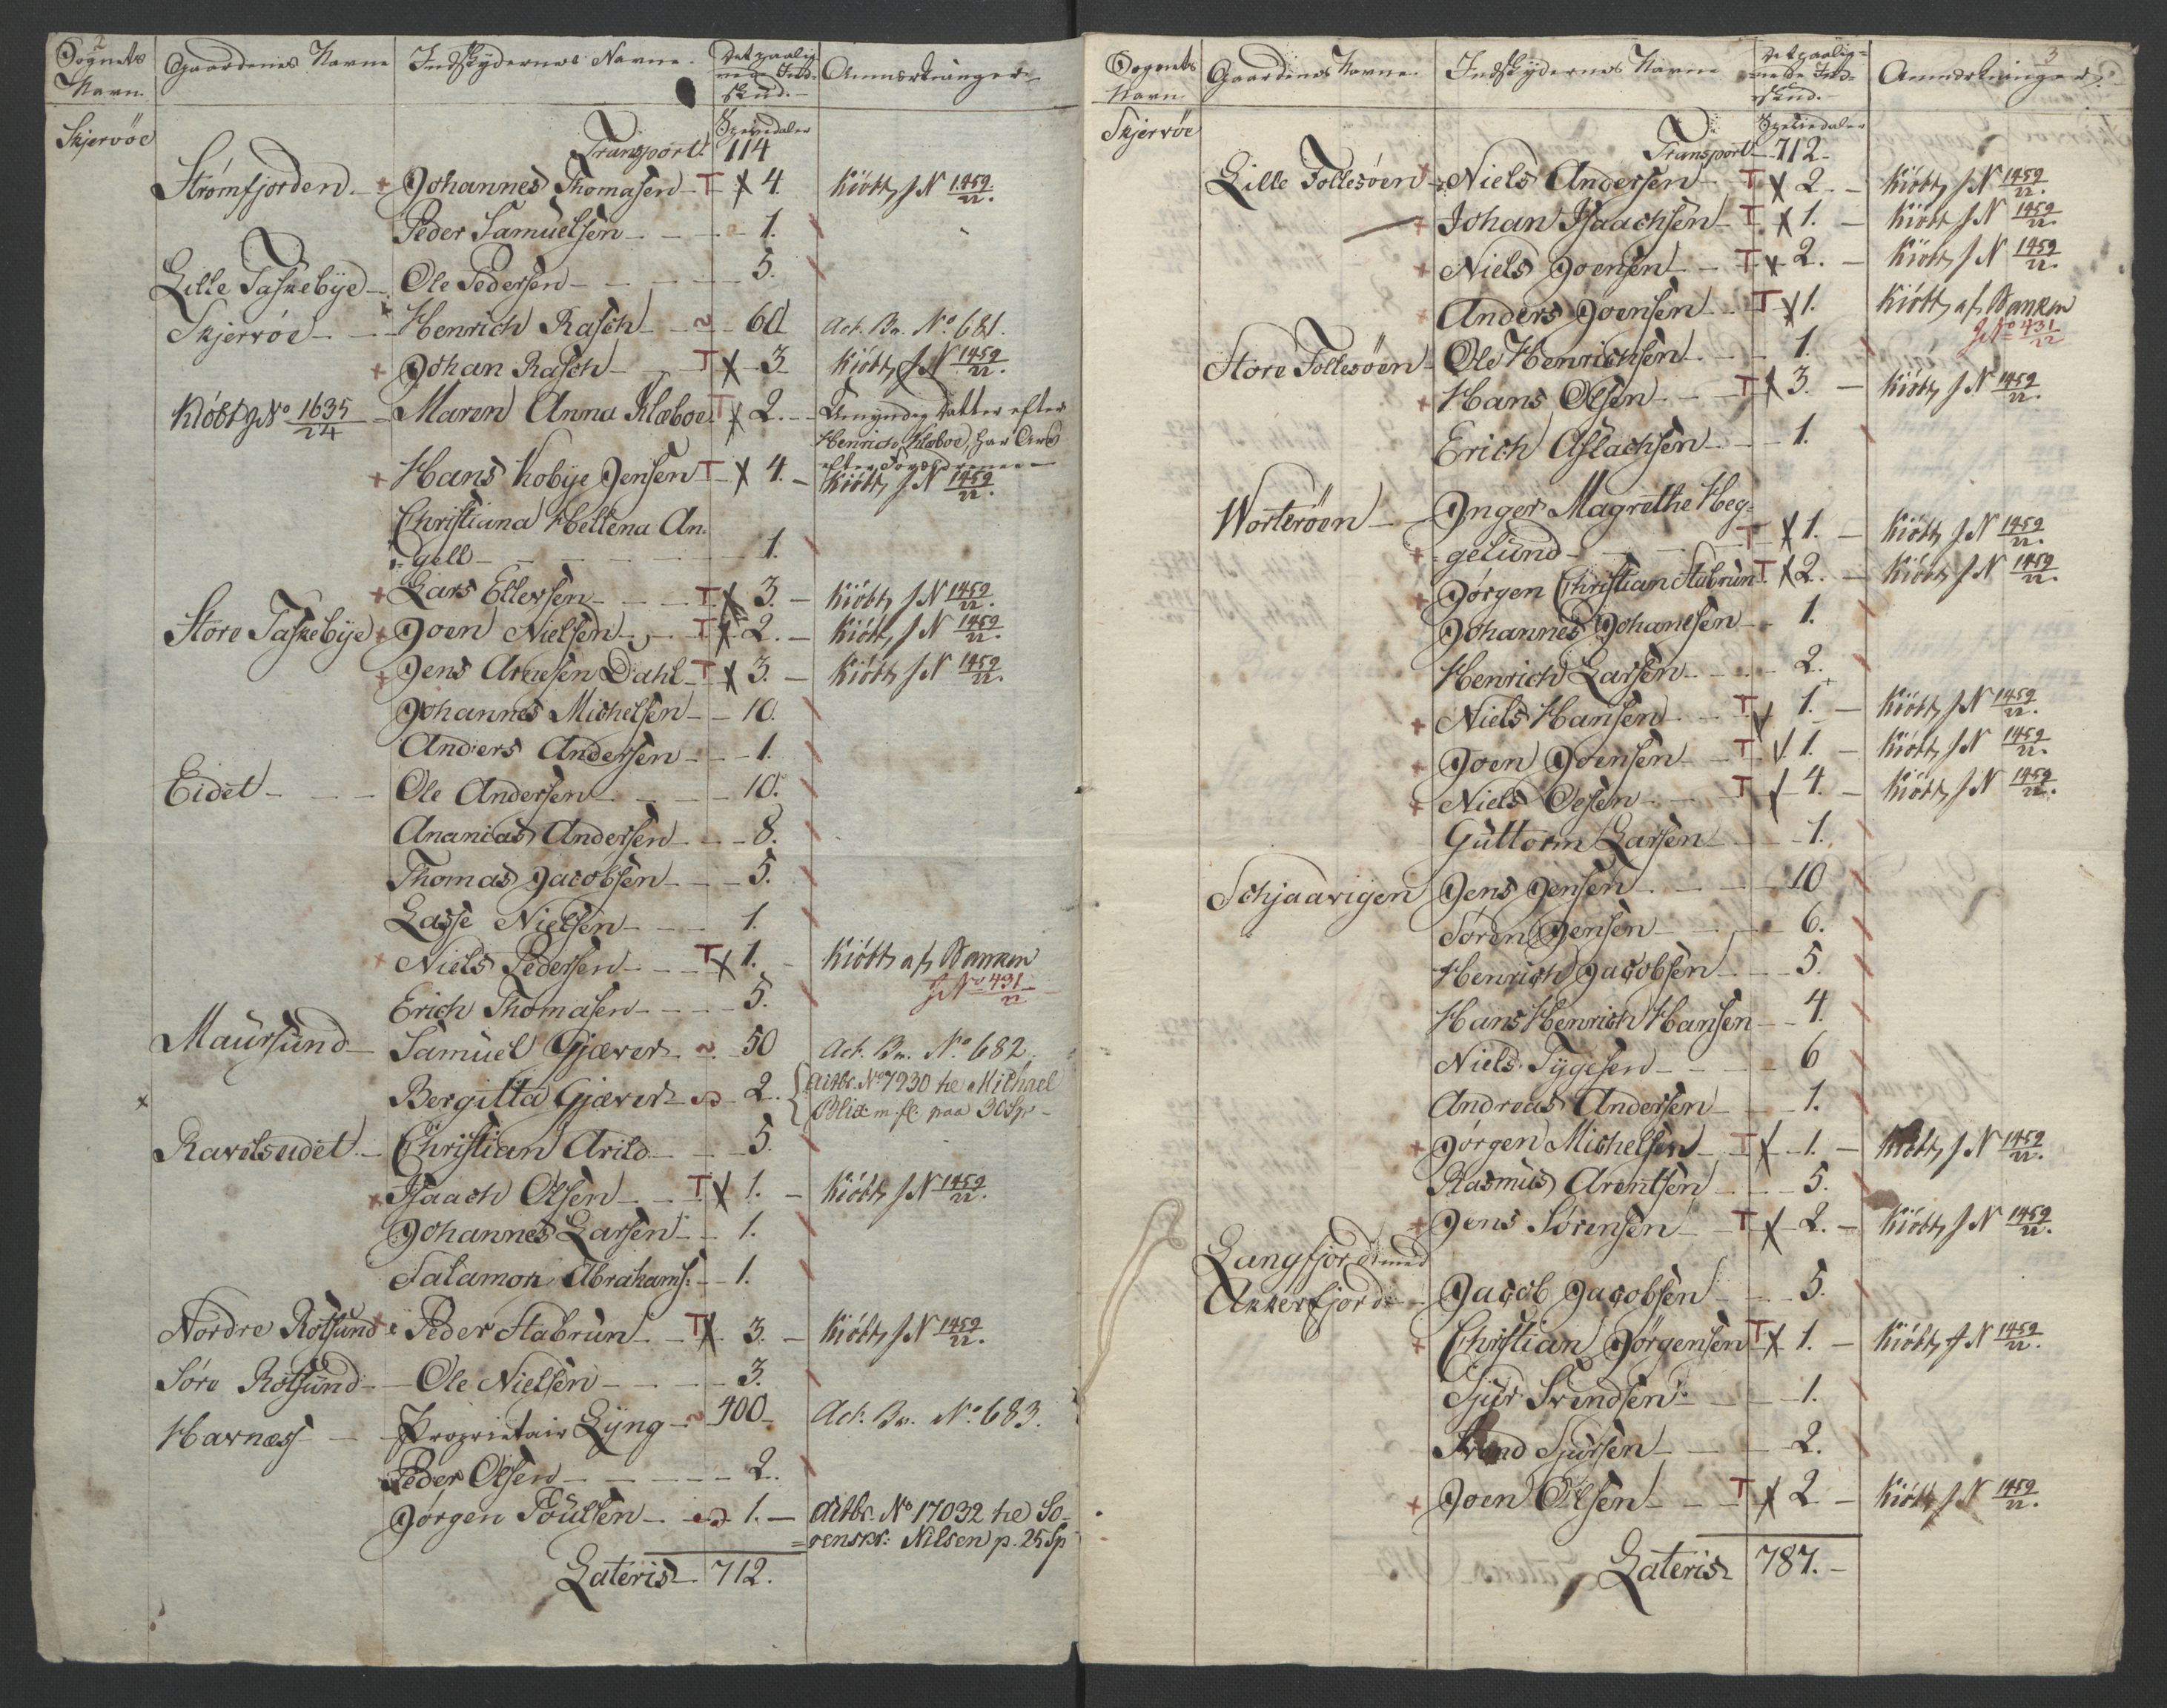 2
Sognets Navn. Gaardenes Navne Indskydernes Navne. Det paalignede Indskud. Anmærkninger
Skjervöe Transport Speciedaler 114
Strømfjorden + Johannes Thomasen T X 4. Kiöbt, J N 1459/22.
Peder Samuelsen 1.
Lille Taskebye Ole Pedersen 5.
Skjervöe Henrich Rasch 60 Act. Br. No 681.
+ Johan Rasch T X 3 Kiöbt, J N 1459/22.
Kiöbt J No 1635/24 Maren Anna Klæboe T X 2. Umyndig Datter efter
Henrich Klæboe, har Arv
efter Forældrene
+ Hans Kobye Jensen T X 4. Kiöbt, J N 1459/22.
Christiana Hellena An-
gell 1.
+ Lars Ellersen T X 3. Kiöbt, J N 1459/22.
Store Taskebye + Joen Nielsen T X 2. Kiöbt, J N 1459/22.
+ Jens Arnesen Dahl T X 3. Kiöbt, J N 1459/22.
Johannes Michelsen 10.
Anders Andersen 1.
Eidet Ole Andersen 10.
Ananias Andersen 8.
Thomas Jacobsen 5.
Lasse Nielsen 1.
+ Niels Pedersen T X 1. Kiöbt af Banken
J No 431/22
Erich Thomasen 5.
Maursund Samuel Gjæver 50 Act. Br. No 682.
x Bergitta Gjæver 2. Actbr. No 7930 til Michael
Blix m. fl. paa 30 Sp
Ravelseidet Christian Arild 5.
+ Isaach Olsen T X 1. Kiöbt, J N 1459/22.
Johannes Larsen 1.
Salamon Abrahams: 1.
Nordre Rotsund + Peder Stabrun T X 3. Kiöbt, J N 1459/22.
Søre Rotsund Ole Nielsen 3.
Havnæs Proprietair Lyng 400 Act. Br. No 683.
Peder Olsen 2.
Jørgen Poulsen 1. Actbr. No 17032 til So-
renskr: Nilsen p. 25 Sp
Lateris 712.
3
Sognets Navn Gaardenes Navne. Indskydernes Navne Det paalignede Indskud. Anmærkninger.
Skjervöe Transport Speciedaler 712
Lille Follesöen + Niels Andersen T X 2. Kiöbt, J N 1459/22.
+ Johan Isaachsen T X 1. Kiöbt J N 1459/22.
+ Niels Joensen T X 2. Kiöbt, J N 1459/22.
+ Anders Joensen T X 1. Kiöbt, af Banken
J No 431/22
Store Follesöen Ole Henrichsen 1.
+ Hans Olsen T X 3. Kiöbt, J N 1459/22.
Erich Aslachsen 1.
Worterøen Inger Magrethe Heg-
+ gelund T X 1. Kiöbt, J N 1459/22.
+ Jørgen Christian Stabrun T X 2. Kiöbt, J N 1459/22.
Johannes Johannesen 1.
Henrich Larsen 2.
+ Niels Hansen T X 1. Kiöbt, J N 1459/22.
+ Joen Joensen T X 1. Kiöbt, J N 1459/22.
+ Niels Olsen T X 4. Kiöbt, J N 1459/22.
Guttorm Larsen 1.
Schjaavigen Jens Jensen 10
Søren Jensen 6.
Henrich Jacobsen 5.
Hans Henrich Hansen 4.
Niels Tygesen 6
Andreas Andersen 1.
+ Jørgen Michelsen T X 1. Kiöbt, J N 1459/22.
Rasmus Arentsen 5.
+ Jens Sørensen T X 2. Kiöbt, J N 1459/22.
Langfjord med
Akkerfjord Jacob Jacobsen 5.
+ Christian Jörgensen T X 1. Kiöbt, J N 1459/22.
Sjur Svendsen 1.
Svend Sjursen 2.
+ Joen Olsen T X 2 Kiöbt, J N 1459/22.
Lateris 787.